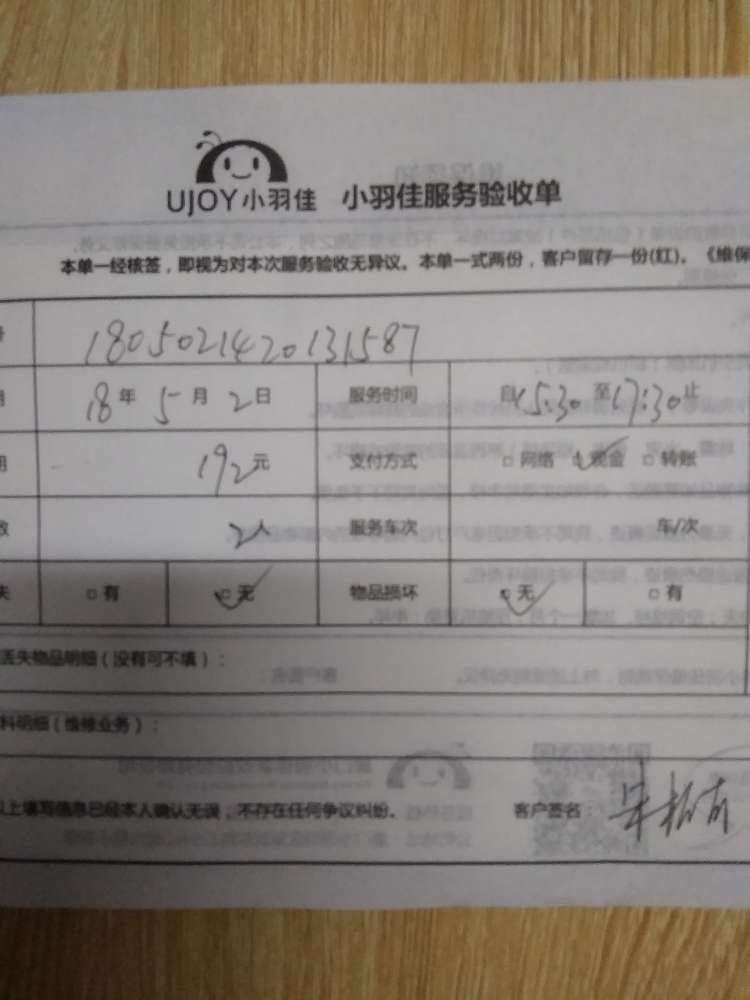 UJOY小羽佳 小羽佳服务验收单
本单一经核签，即视为对本次服务验收无异议。本单一式两份，客户留存一份(红)。《维保
1805021420131587
18年 5月 2日 服务时间 自15:30至17:30止
192元 支付方式 □网络 ☑现金 □转账
2人 服务车次 车/次
失 □有 ☑无 物品损坏 ☑无 □有
丢失物品明细（没有可不填）：
料明细（维修业务）：
以上填写信息已经本人确认无误，不存在任何争议纠纷。 客户签名：